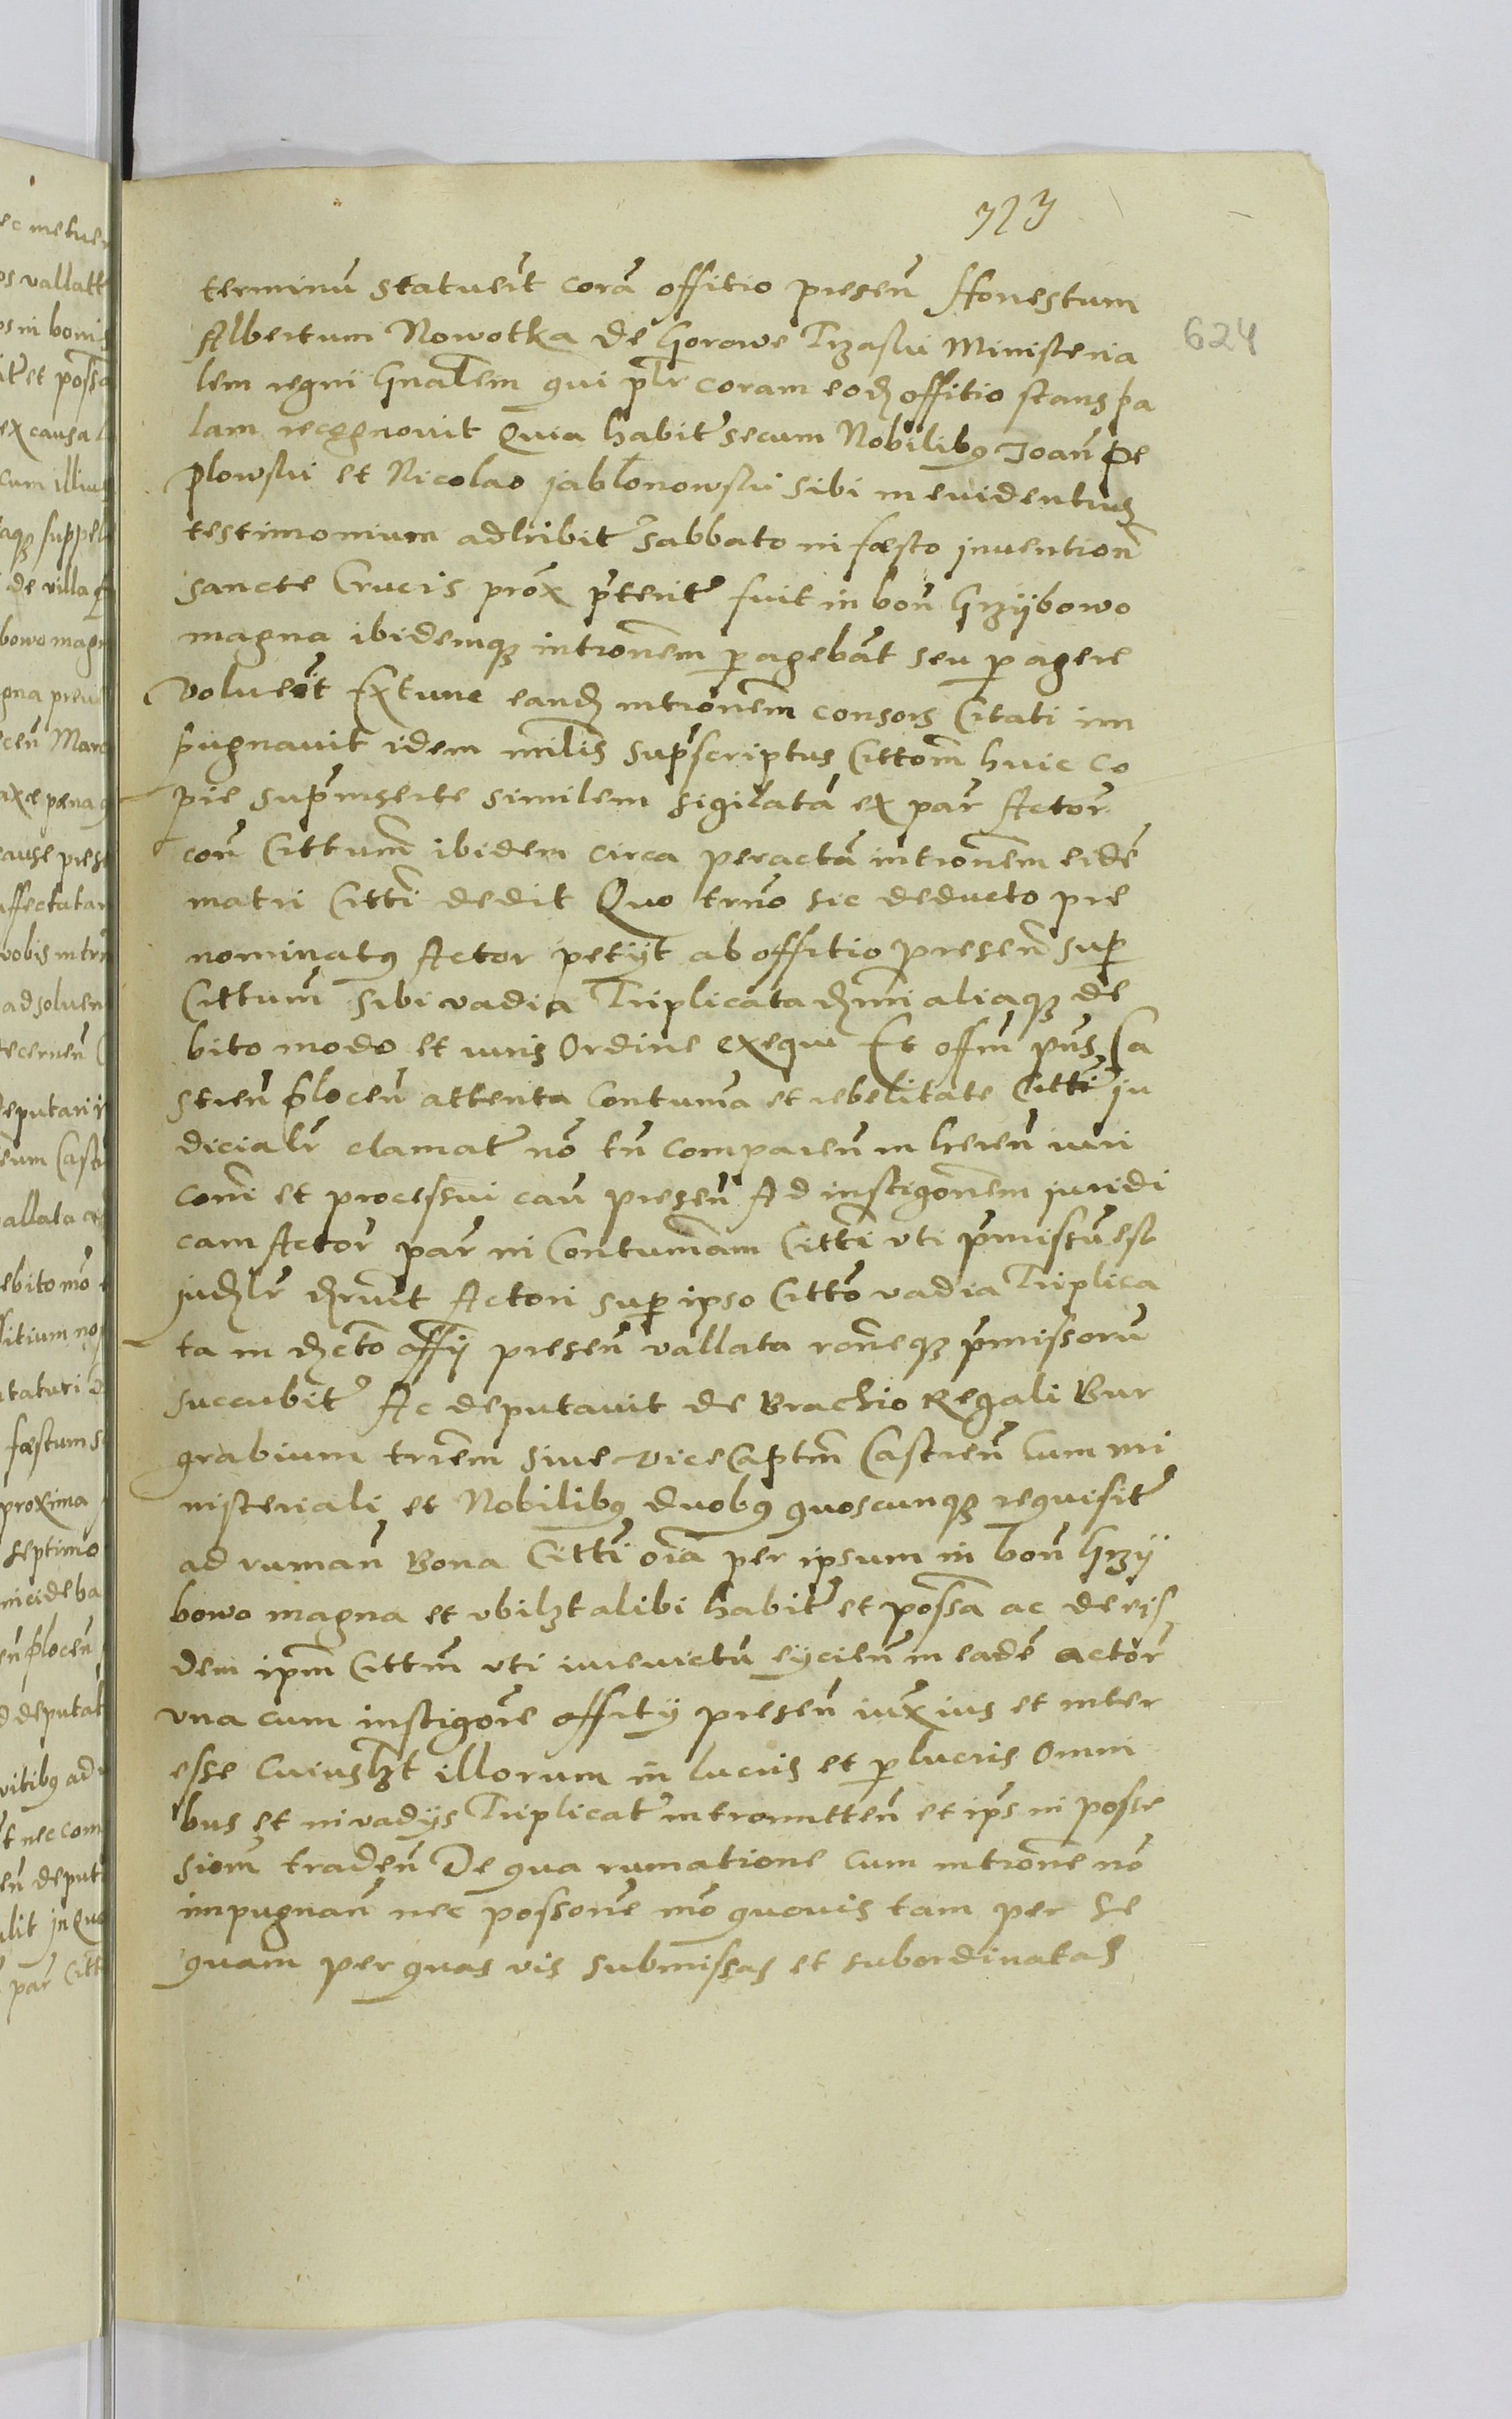 723
624
terminũ statuerit corã offitio presen̄ Honestum
Albertum Nowotka de Gorowe Trzaski Ministeria
lem regni Gnãlem qui plr̃ coram eod̃ offitio stans pa
lam recognovit Quia habit̃ secum Nobilibꝯ Joan̄ Pe
plowski et Nicolao Jablonowski sibi in evidentius
testimonium adhibit̃ Sabbato in fæsto invention̄
sancte Crucis prõx p̃terit̃ fuit in bon̄ Grzÿbowo
magna ibidemqꝫ introñem ꝑagebãt seu ꝑagere
volueñt Extunc eand̃ introñem consors Citati im
pugnavit idem mñlis sup̃scriptus Citto͠m huic co
pie sup̃inserte similem sigilatã ex par̃ Actor̃
con̄ Citt͠um ibidem circa peractã introñem eidẽ
matri Citt͠i dedit Quo trño sic deducto pre
nominatꝯ Actor petijt ab offitio presen̄ suꝑ
Citt͠um sibi vadia Triplicata d̃rni aliaqꝫ de
bito modo et iuris Ordine exequi Et off̃m pñs Ca
stren̄ plocen̄ attenta Contuma et rebelitate Citt͠i ju
dicialr̃ clamat̃ nõ tñ comparen̄ in heren̄ iuri
Coñi et processui cau̅ presen̄ Ad instigoñem juridi
cam Actor̃ par̃ in Contumãm Citt͠i vti p̃missũ est
jud̃lr̃ d̃revit Actori suꝑ ipso Citt͠o vadia Triplica
ta in d̃cto off̃ij presen̄ vallata roñeqꝫ p̃missorũ
succubit̃ Ac deputavit de Brachio Regali Bur
grabium trr̃em sive viceCapt͠m Castren̄ Cum mi
nisteriali et Nobilibꝯ duobꝯ quoscunqꝫ requisit̃
ad ruman̄ Bona Citt͠i oĩa per ipsum in bon̄ Grzÿ
bowo magna et vbilꝫt alibi habit̃ et poss̃a ac de eis
dem ip̃m Citt͠m vti iurevictũ eijcien̄ in eadẽ actor̃
vna cum instigor̃e offitij presen̄ iux̃ ius et inter
esse Cuiuslꝫt illorum in lucris et ꝑlucris Omni
bus et in vadijs Triplicat̃ intromitten̄ et ip̃s in posse
sioñ traden̄ De qua rumatione Cum introñe nõ
impugnan̄ nec possoñe mõ quovis tam per se
quam per quas vis submissas et subordinatas